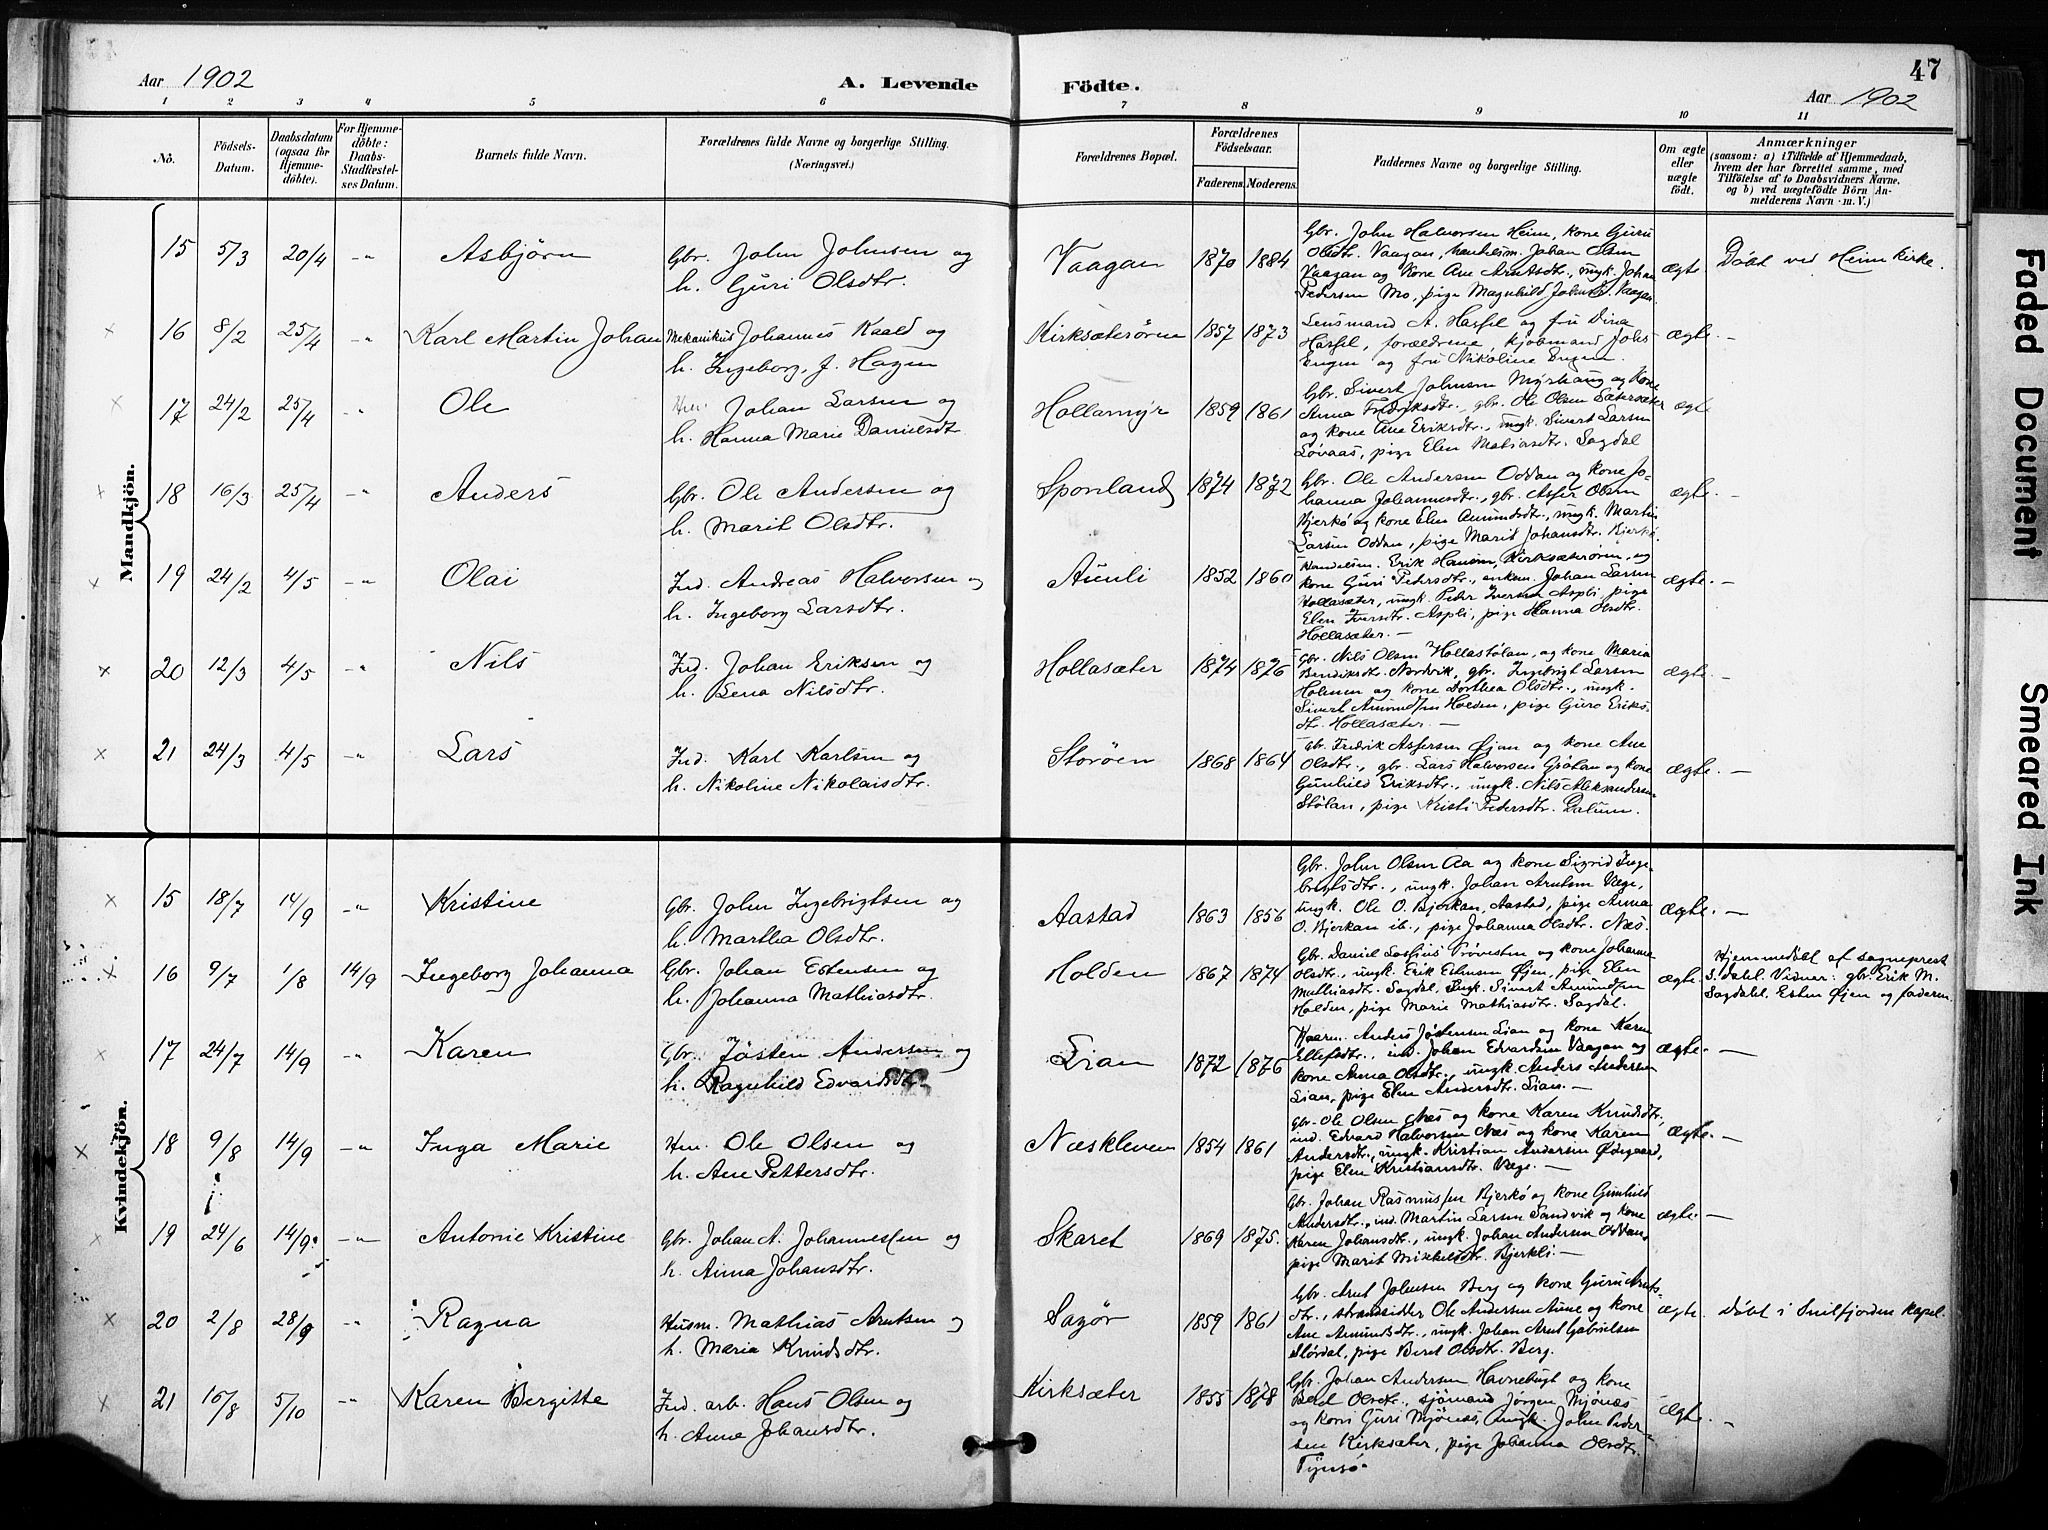 47
Aar 1902
A. Levende
Födte.
Aar 1902
1 2 3 4 5 6 7 8 9 10 11
No.
Födsels-
Datum.
Daabsdatum
(ogsaa for
Hjemme-
döbte).
For Hjemme-
döbte:
Daabs-
Stadfæstel-
ses Datum.
Barnets fulde Navn.
Forældrenes fulde Navne og borgerlige Stilling.
(Næringsvei.)
Forældrenes Bopæl.
Forældrenes
Födselsaar.
Faderens.
Moderens.
Faddernes Navne og borgerlige Stilling.
Om ægte
eller
uægte
født.
Anmærkninger
(saasom: a) i Tilfælde af Hjemmedaab,
hvem der har forrettet samme, med
Tilföielse af to Daabsvidners Navne,
og b) ved uægtefödte Börn An-
melderens Navn m. V.)
Mandkjön.
15 5/3 20/4 -"- Asbjörn
Gbr. John Johnsen og
h. Guri Olsdtr.
Vaagan 1870 1884
Gbr. John Halvorsen Heim, kone Guru
Olsdtr. Vaagan, Johan
Vaagan og kone Ane Arntsdtr., ungk. Johan
Pedersen Mo, pige Magnhild Johnsd. Vaagan.
ægte Döbt ved Heim kirke.
16 8/2 25/4 -"- Karl Martin Johan
Mekanikus Johannes Kaald og
h. Ingeborg, f. Hagen
Kirksæterören 1857 1873
Lensmand A. Hassel og fru Dina
Hassel, forældrene, kjöbmand Johs
Engen og fru Nikoline Engen.
ægte. —
17 24/2 25/4 -"- Ole
Johan Larsen og
h. Hanna Marie Danielsdt.
Hollamyr 1859 1861
Gbr. Sivert Johnsen Myrhaug og kone
Anna Fredriksdtr., gbr. Ole Olsen Sætersæter
og kone Ane Eriksdtr., ungk. Sivert Larsen
Lövaas, pige Elen Matiasdtr. Sagdal
ægte.
18 16/3 25/4 -"- Anders
Gbr. Ole Andersen og
h. Marit Olsdtr.
Sponland 1874 1872
Gbr. Ole Andersen Oddan og kone Jo-
hanna Johannesdtr., gbr. Asfer Olsen
Bjerkö og kone Elen Amundsdtr., ungk. Martin
Larsen Oddan, pige Marit Johansdtr. Bjerkö.
ægte. —
19 24/2 4/5 -"- Olai
Ind. Andreas Halvorsen og
h. Ingeborg Larsdtr.
Aunli 1852 1860
Handelsm. Erik Hansen, Kirksæterören, og
kone Guri Pedersdtr., enkem. Johan Larsen
Hollasæter, ungk. Peder Iversen Aspli, pige
Elen Iversdtr. Aspli, pige Hanna Olsdtr.
Hollasæter. —
ægte. —
20 12/3 4/5 -"- Nils
Ind. Johan Eriksen og
h. Lena Nilsdtr.
Hollasæter 1874 1876
Gbr. Nils Olsen Hollastölan, og kone Maria
Bendiksdtr. Nordvik, gbr. Ingebrigt Larsen
Holmen og kone Dorthea Olsdtr., ungk.
Sivert Amundsen Holden, pige Guro Eriks-
dtr. Hollasæter. —
ægte. —
21 24/3 4/5 -"- Lars
Ind. Karl Karlsen og
h. Nikoline Nikolaisdtr.
Storöen 1868 1864
Gbr. Fredrik Asfersen Öjen og kone Ane
Olsdtr., gbr. Lars Halvorsen Grötan og kone
Gunhild Eriksdtr., ungk. Nils Aleksandersen
Stölan, pige Kristi Pedersdtr. Dalum.
ægte. —
Kvindekjön.
15 18/7 14/9 -"- Kristine
Gbr. John Ingebrigtsen og
h. Martha Olsdtr.
Aastad 1863 1856
Gbr. John Olsen Aa og kone Sigrid Inge-
brigtsdtr., ungk. Johan Arntsen Væge,
ungk. Ole O. Bjerkan, Aastad, pige Anna
O. Bjerkan ib., pige Johanna Olsdtr. Næs.
ægte. —
16 9/7 1/8 14/9 Ingeborg Johanna
Gbr. Johan Estensen og
h. Johanna Mathiasdtr.
Holden 1867 1874
Gbr. Daniel Trövesten og kone Johanna
Olsdtr., ungk. Erik Estensen Öjen, pige Elen
Mathiasdtr. Sagdal. Ungk. Sivert Amundsen
Holden, pige Marie Mathiasdtr. Sagdal.
ægte. Hjemmedöbt af sogneprest
S. Dahl. Vidner: gbr. Erik M.
Sagdahl. Esten Öjen og faderen.
17 24/7 14/9 -"- Karen
Gbr. Jösten Andersen og
h. Ragnhild Edvardsdtr.
Lian 1872 1876
Kaarm. Anders Jöstensen Lian og kone Karen
Ellefsdtr., ind. Johan Edvardsen Vaagan og
kone Anna Olsdtr., ungk. Anders Andersen
Lian, pige Elen Andersdtr. Lian. —
ægte. —
18 9/8 14/9 -"- Inga Marie
Hm. Ole Olsen og
h. Ane Pettersdtr.
Næskleven 1854 1861
Gbr. Ole Olsen Næs og kone Karen Knudsdtr,
ind. Edvard Halvorsen Næs og kone Karen
Andersdtr., ungk. Kristian Andersen Ödegaard,
pige Elen Kristiansdtr. Væge. —
ægte. —
19 24/6 14/9 -"- Antonie Kristine
Gbr. Johan A. Johannessen og
h. Anna Johansdtr.
Skaret 1869 1875.
Gbr. Johan Rasmussen Bjerkö og kone Gunhild
Andersdtr., ind. Martin Larsen Sandvik og kone
Karen Johansdtr., ungk. Johan Andersen Oddan,
pige Marit Mikkelsdtr. Bjerkli. —
ægte. —
20 2/8 28/9 -"- Ragna
Husm. Mathias Arntsen og
h. Maria Knudsdtr.
Sagör 1859 1861
Gbr. Arnt Johnsen Berg og kone Guru Arnts-
dtr., strandsidder Ole Andersen Aune og kone
Ane Amundsdtr., ungk. Johan Arnt Gabrielsen
Slördal, pige Beret Olsdtr. Berg.
ægte. Döbt i Snilfjorden kapel.
21 16/8 5/10 -"- Karen Bergitte
Ind. arb. Hans Olsen og
h. Anne Johansdtr.
Kirksæter 1855 1878
Gbr. Johan Andersen Havnebugt og kone
Olsdtr., sjömand Jörgen Mjönes
og kone Guri Mjönes, ungk. John Peder-
sen Kirksæter, pige Johanna Olsdtr.
ægte. —
Faded Document
Smeared Ink